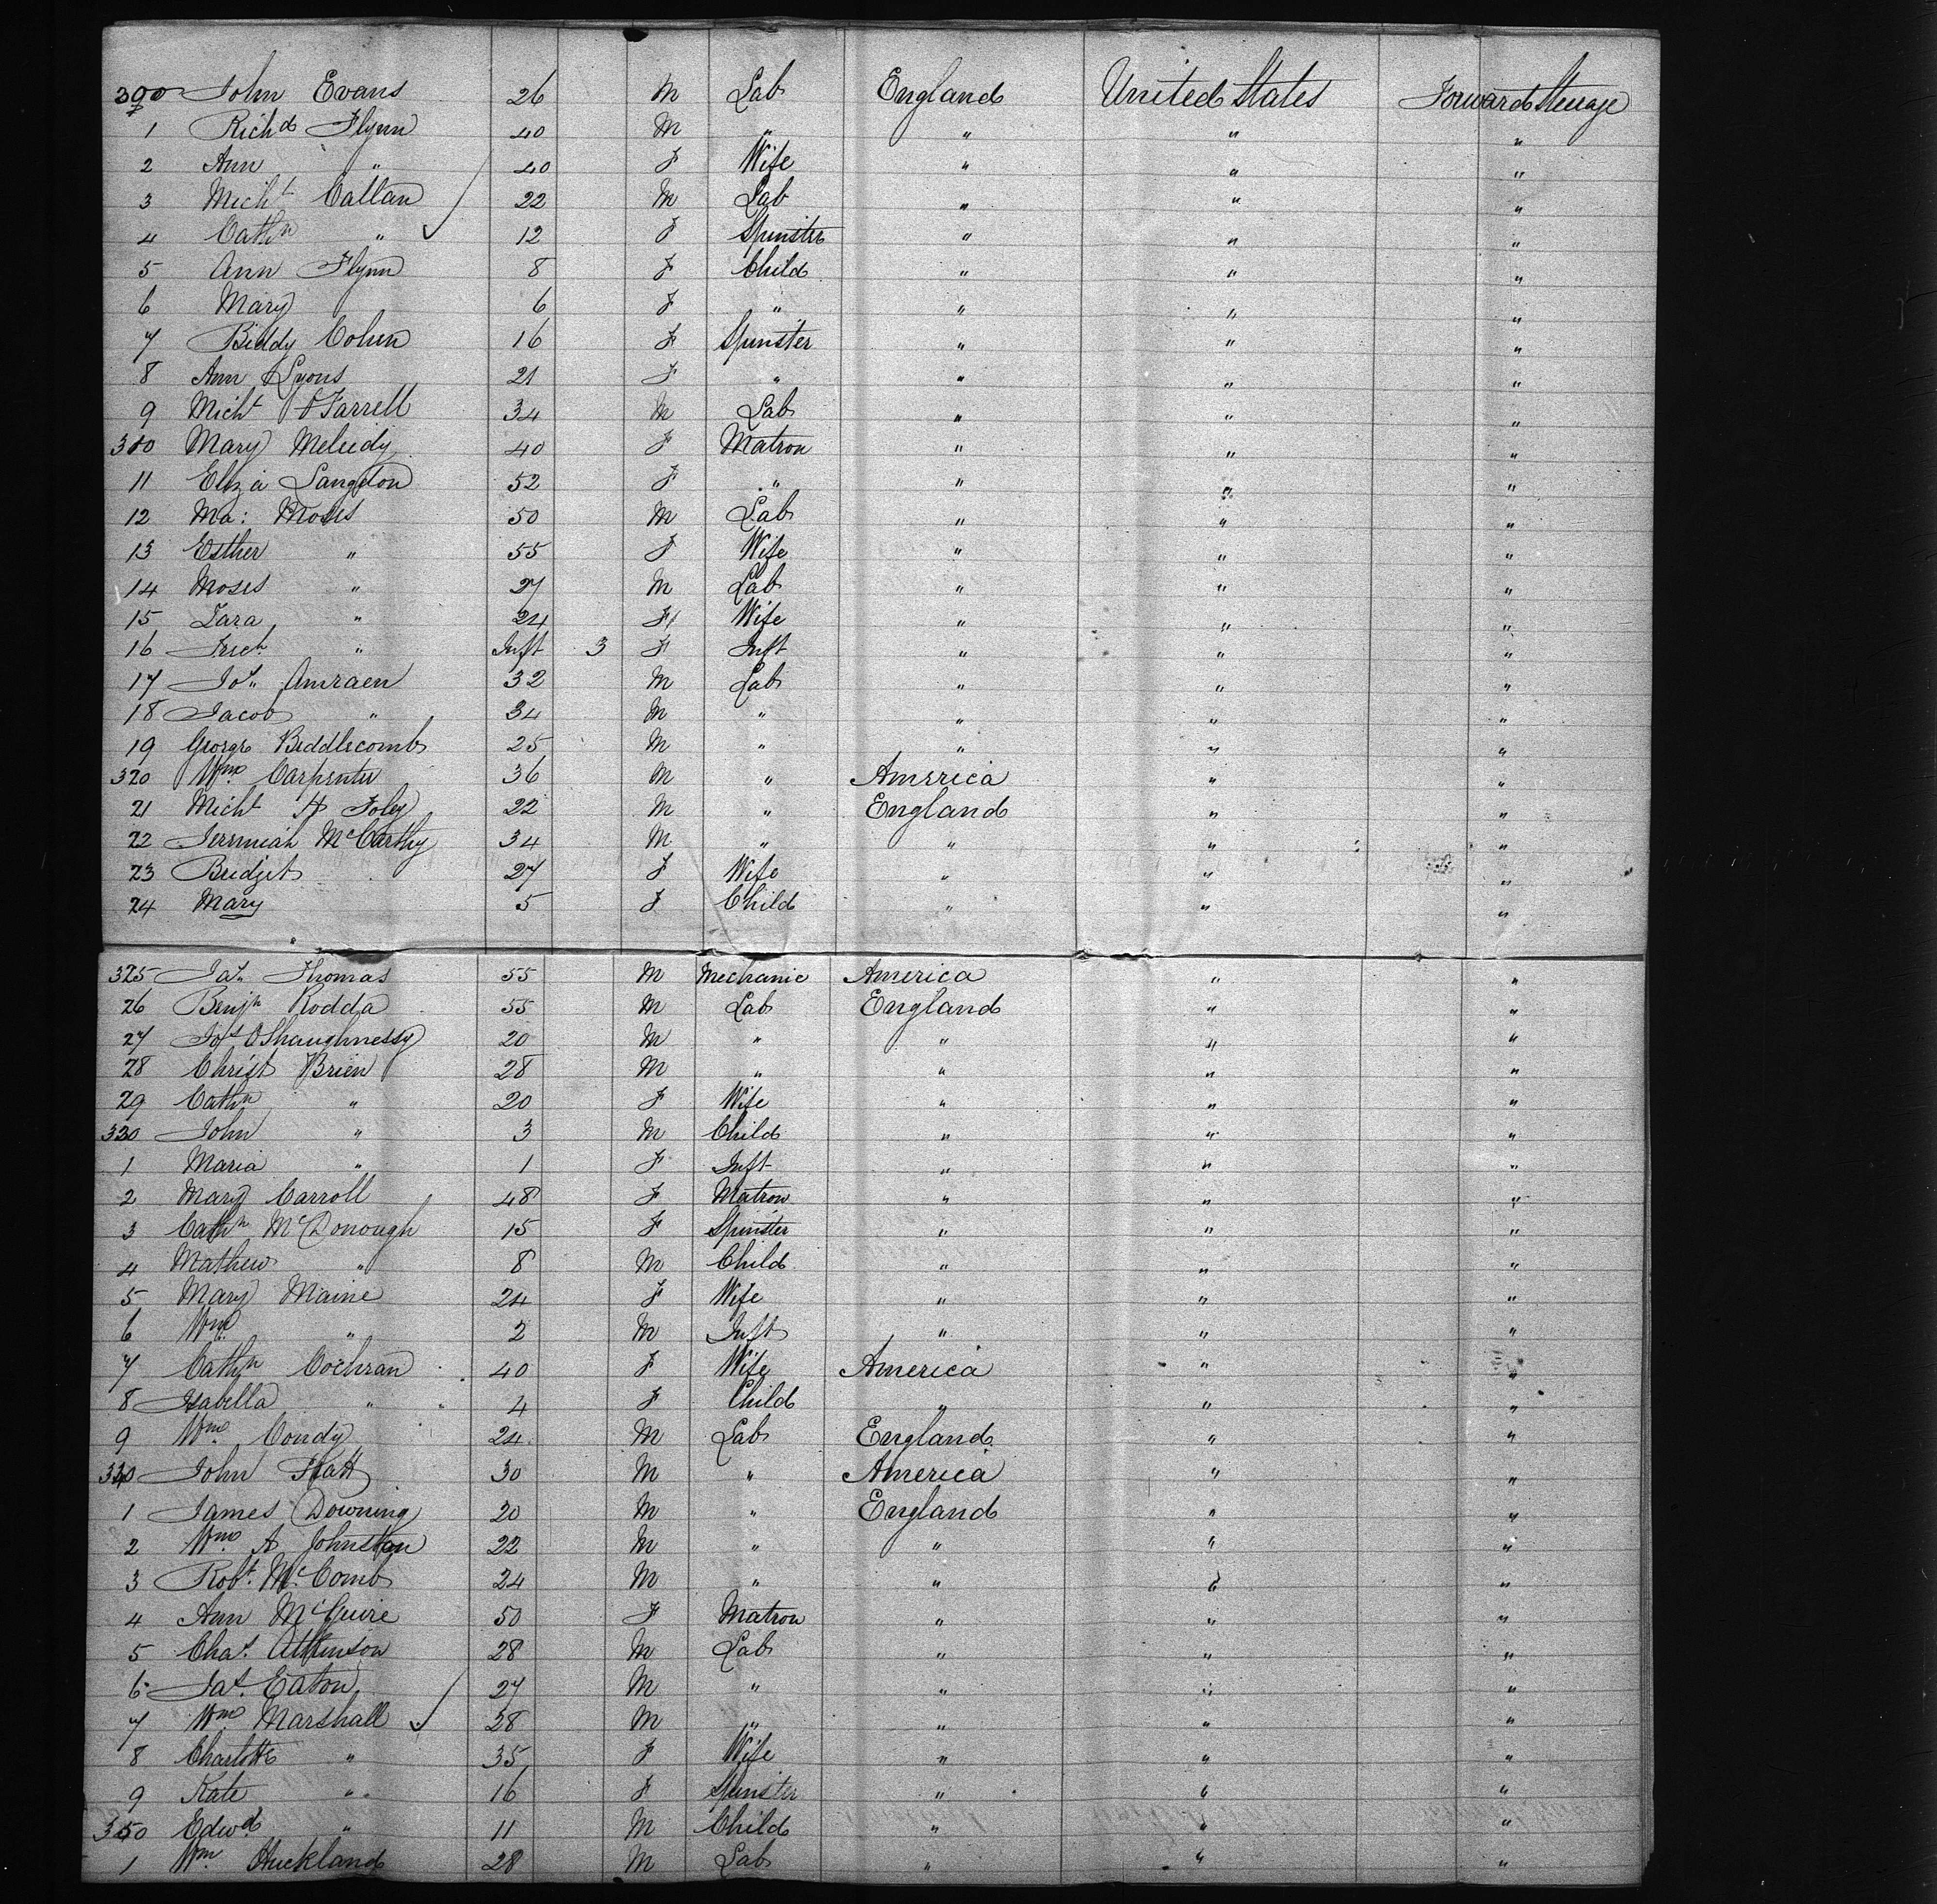 300 John Evans 26 M Lab England United States Forward Steerage
1 Richd Flynn 40 M " " " "
2 Ann " 40 F Wife " " "
3 Michl Callan 22 M Lab " " "
4 Cathn " 12 F Spinster " " "
5 Ann Flynn 8 F Child " " "
6 Mary 6 F " " " "
7 Biddy Cohen 16 F Spinster " " "
8 Ann Lyons 21 F " " " "
9 Michl O'Farrell 34 M Lab " " "
310 Mary Meleedy 40 F Matron " " "
11 Eliza Langdon 52 F " " " "
12 Ma: Moses 50 M Lab " " "
13 Esther " 55 F Wife " " "
14 Moses " 27 M Lab " " "
15 Zara " 24 F Wife " " "
16 " Inft 3 F Inft " " "
17 Jos. Amraen 32 M Lab " " "
18 Jacob " 34 M " " " "
19 George Biddlecomb 25 M " " " "
320 Wm Carpenter 36 M " America " "
21 Michl H Foley 22 M " England " "
22 Jeremiah McCarthy 34 M " " " "
23 Bridget 27 F Wife " " "
24 Mary 5 F Child " " "
325 Jas. Thomas 55 M Mechanic America " "
26 Benjn Rodda 55 M Lab England " "
27 Jos O'Shaughnessy 20 M " " " "
28 Christ Brien 28 M " " " "
29 Cathn " 20 F Wife " " "
330 John " 3 M Child " " "
1 Maria " 1 F Inft " " "
2 Mary Carroll 48 F Matron " " "
3 Cathn McDonough 15 F Spinster " " "
4 Mathew " 8 M Child " " "
5 Mary Maine 24 F Wife " " "
6 Wm " 2 M Inft " " "
7 Cathn Cochran 40 F Wife America " "
8 Isabella " 4 F Child " " "
9 Wm Condy 24 M Lab England " "
340 John Hatt 30 M " America " "
1 James Downing 20 M " England " "
2 Wm A Johnston 22 M " " " "
3 Robt. McComb 24 M " " " "
4 Ann McGuire 50 F Matron " " "
5 Chas. Atkinson 28 M Lab " " "
6 Jas. Eaton 27 M " " " "
7 Wm Marshall 28 M " " " "
8 Charlotte " 35 F Wife " " "
9 Kate " 16 F Spinster " " "
350 Edwd " 11 M Child " " "
1 Wm Huckland 28 M Lab " " "